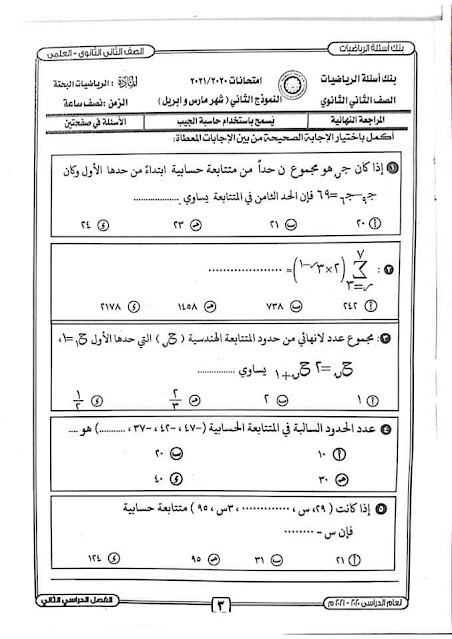 بنك أسئلة الرياضيات
الصف الثاني الثانوي - العلمي
بنك أسئلة الرياضيات
امتحانات ٢٠٢١/٢٠٢٠
المادة: الرياضيات البحتة
الصف الثاني الثانوي
النموذج الثاني (شهر مارس و ابريل)
الزمن: نصف ساعة
المراجعة النهائية
يُسمح باستخدام حاسبة الجيب
الأسئلة في صفحتين
أكمل باختيار الإجابة الصحيحة من بين الإجابات المعطاة:
١ إذا كان جـن هو مجموع ن حداً من متتابعة حسابية ابتداءً من حدها الأول وكان
=٦٩ فإن الحد الثامن في المتتابعة يساوي .................
أ ٢٠ ب ٢١ هـ ٢٣ و ٢٤
٢ : ∑ (٢×٣ر-١) = ..................
٧
ر=٣
أ ٢٤٢ ب ٧٣٨ هـ ١٤٥٨ و ٢١٧٨
٣: مجموع عدد لانهائي من حدود المتتابعة الهندسية (حن) التي حدها الأول ح١=١،
حن=٢حن+١ يساوي ...............
أ ١ ب ٢ هـ ٢/٣ و ١/٢
٤ عدد الحدود السالبة في المتتابعة الحسابية (-٤٧، -٤٢، -٣٧، ..........) هو ....
أ ١٠ ب ٢٠
هـ ٣٠ و ٤٠
٥ إذا كانت (٢٩، س، ..............، ٣س، ٩٥) متتابعة حسابية
فإن س - ........
أ ٢١ ب ٣١ هـ ٩٥ و ١٢٤
لعام الدراسي ٢٠٢٠ - ٢٠٢١م
٣
الفصل الدراسي الثاني